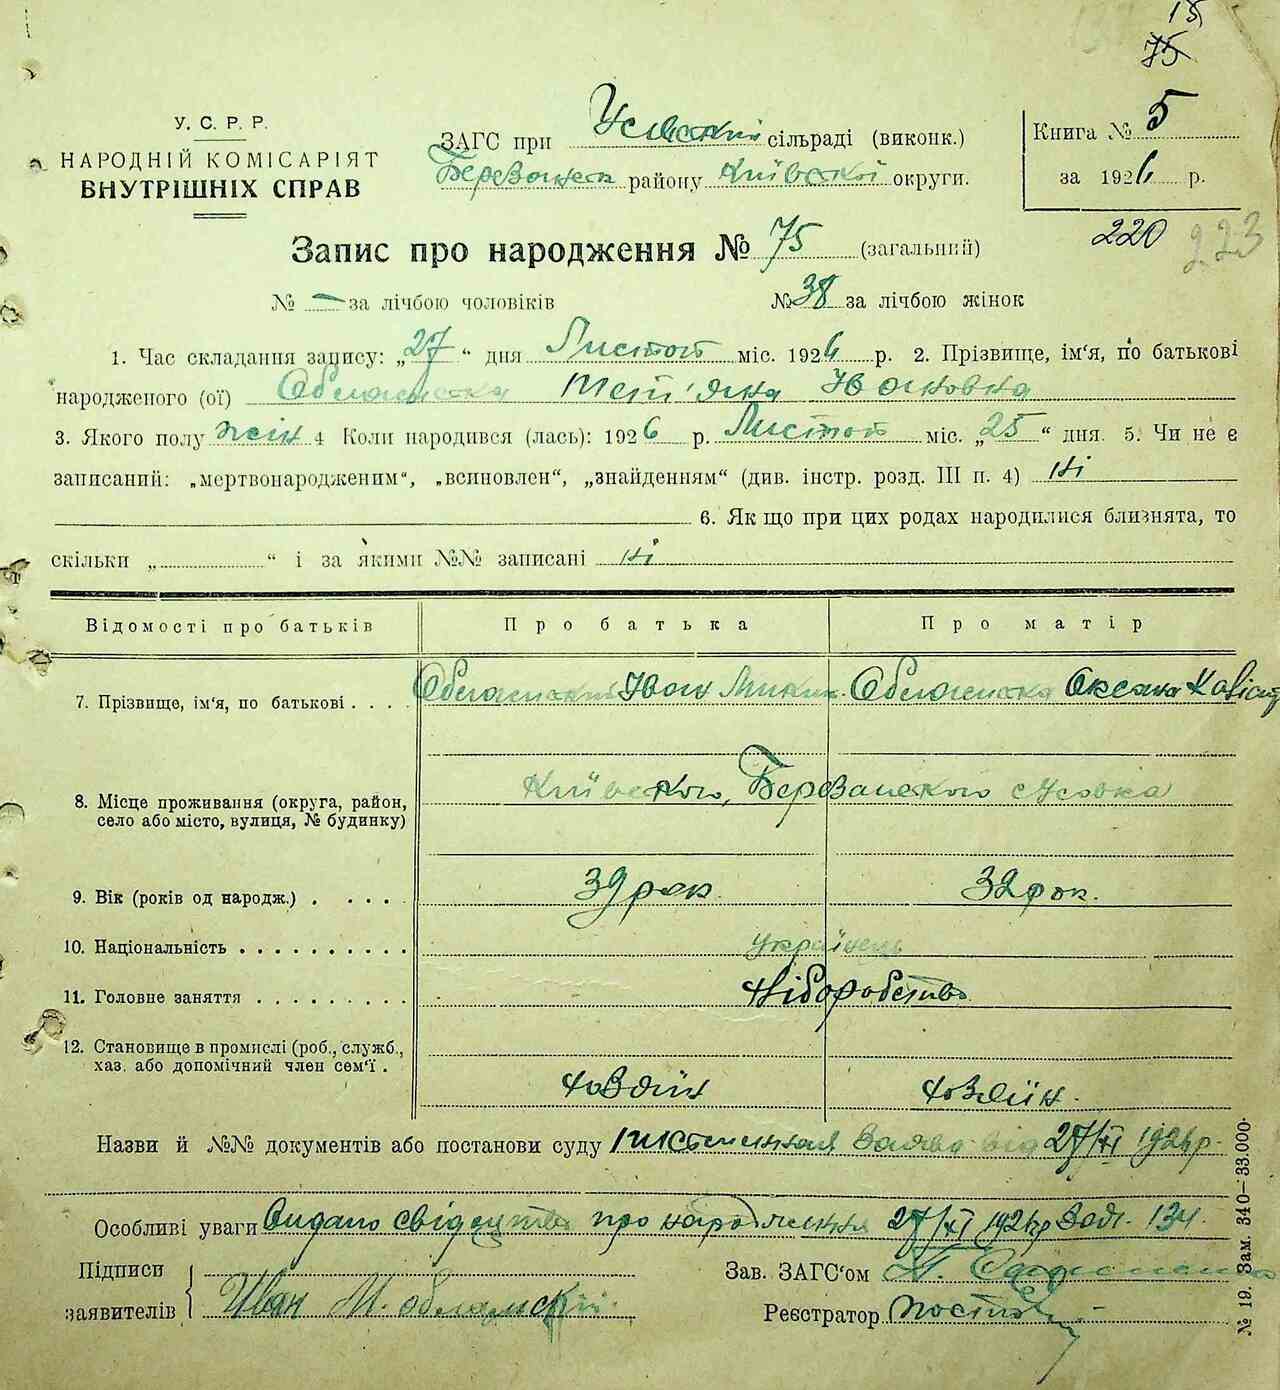 15
75
У. С. Р. Р.
НАРОДНІЙ КОМІСАРІЯТ
ВНУТРІШНІХ СПРАВ
ЗАГС при Усівській сільраді (виконк.)
Березанськ району Київської округи.
Книга № 5
за 1926 р.
220 223
Запис про народження № 75 (загальний)
№ — за лічбою чоловіків № 38 за лічбою жінок
1. Час складання запису: „27“ дня Листоп міс. 1926 р. 2. Прізвище, ім'я, по батькові
народженого (ої) Тетʼяна Івановна
3. Якого полу жін 4 Коли народився (лась): 1926 р. Листоп міс. „25“ дня. 5. Чи не є
записаний: „мертвонародженим“, „всиновлен“, „знайденням“ (див. інстр. розд. III п. 4) ні
6. Як що при цих родах народилися близнята, то
скільки „ “ і за якими №№ записані ні
Відомості про батьків Про батька Про матір
7. Прізвище, ім'я, по батькові . . . . Іван Оксана
8. Місце проживання (округа, район,
село або місто, вулиця, № будинку) Київського, Березанського с Усовка
9. Вік (років од народж.) . . . . . 39 рок. 32 рок.
10. Національність . . . . . . . . . . українець
11. Головне заняття . . . . . . . . . хліборобство
12. Становище в промислі (роб., служб.,
хаз. або допомічний член сем'ї . хозяїн хозяїн.
Назви й №№ документів або постанови суду заява від 27/XI 1926р.
Особливі уваги Видано свідоцтво про народження 27/XI 1926р за № 134.
Підписи
заявителів Иван И.
Зав. ЗАГС'ом
Реєстратор
№ 19. Зам. 340—33.000.